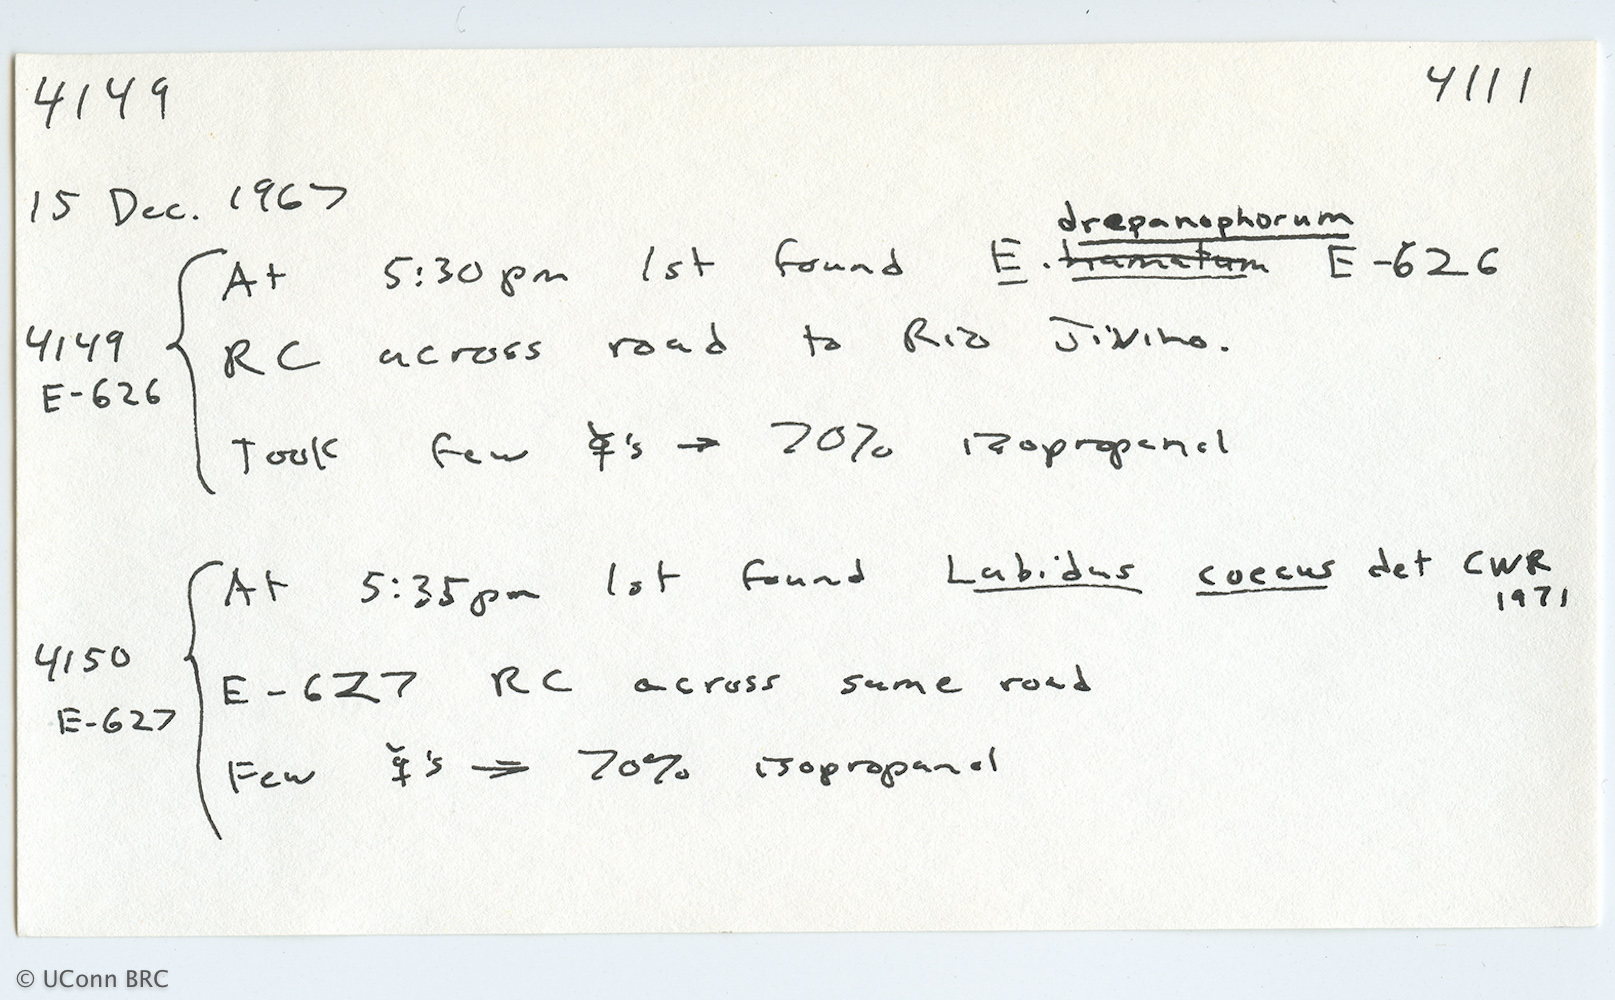 4149 4111
15 Dec. 1967
drepanophorum
At 5:30 pm 1st found E. hamatum E-626
4149 RC across road to Rio Jivino.
E-626
Took few ☿'s → 70% isopropanol
At 5:35 pm 1st found Labidus coecus det CWR
1971
4150
E-627 RC across same road
E-627
Few ☿'s → 70% isopropanol
© UConn BRC